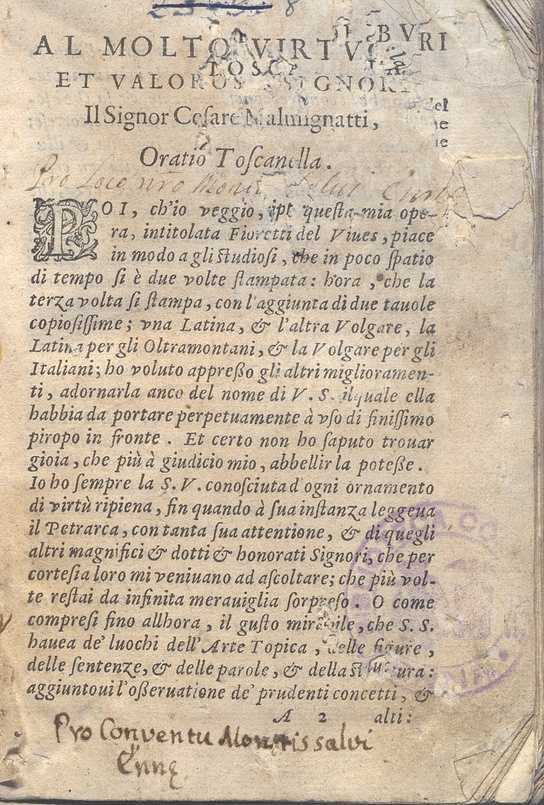 8
AL MOLTO VIRTVO
ET VALOROS SIGNOR
Il Signor Cesare Malmignatti,
Oratio Toscanella.
POI, ch'io veggio, che questa mia ope-
ra, intitolata Fioretti del Viues, piace
in modo a gli studiosi, che in poco spatio
di tempo si è due volte stampata: hora, che la
terza volta si stampa, con l'aggiunta di due tauole
copiosissime; vna Latina, & l'altra Volgare, la
Latina per gli Oltramontani, & la Volgare per gli
Italiani; ho voluto appresso gli altri miglioramen-
ti, adornarla anco del nome di V. S. il quale ella
habbia da portare perpetuamente à vso di finissimo
piropo in fronte. Et certo non ho saputo trouar
gioia, che più à giudicio mio, abbellir la potesse.
Io ho sempre la S. V. conosciuta d'ogni ornamento
di virtù ripiena, fin quando à sua instanza leggeua
il Petrarca, con tanta sua attentione, & di quegli
altri magnifici & dotti & honorati Signori, che per
cortesia loro mi veniuano ad ascoltare; che più vol-
te restai da infinita merauiglia sorpreso. O come
compresi fino allhora, il gusto mirabile, che S. S.
hauea de' luochi dell'Arte Topica, delle figure,
delle sentenze, & delle parole, & della struttura:
aggiuntoui l'osseruatione de' prudenti concetti, &
A 2 alti:
Pro Conventu Montissalvi
Ennę